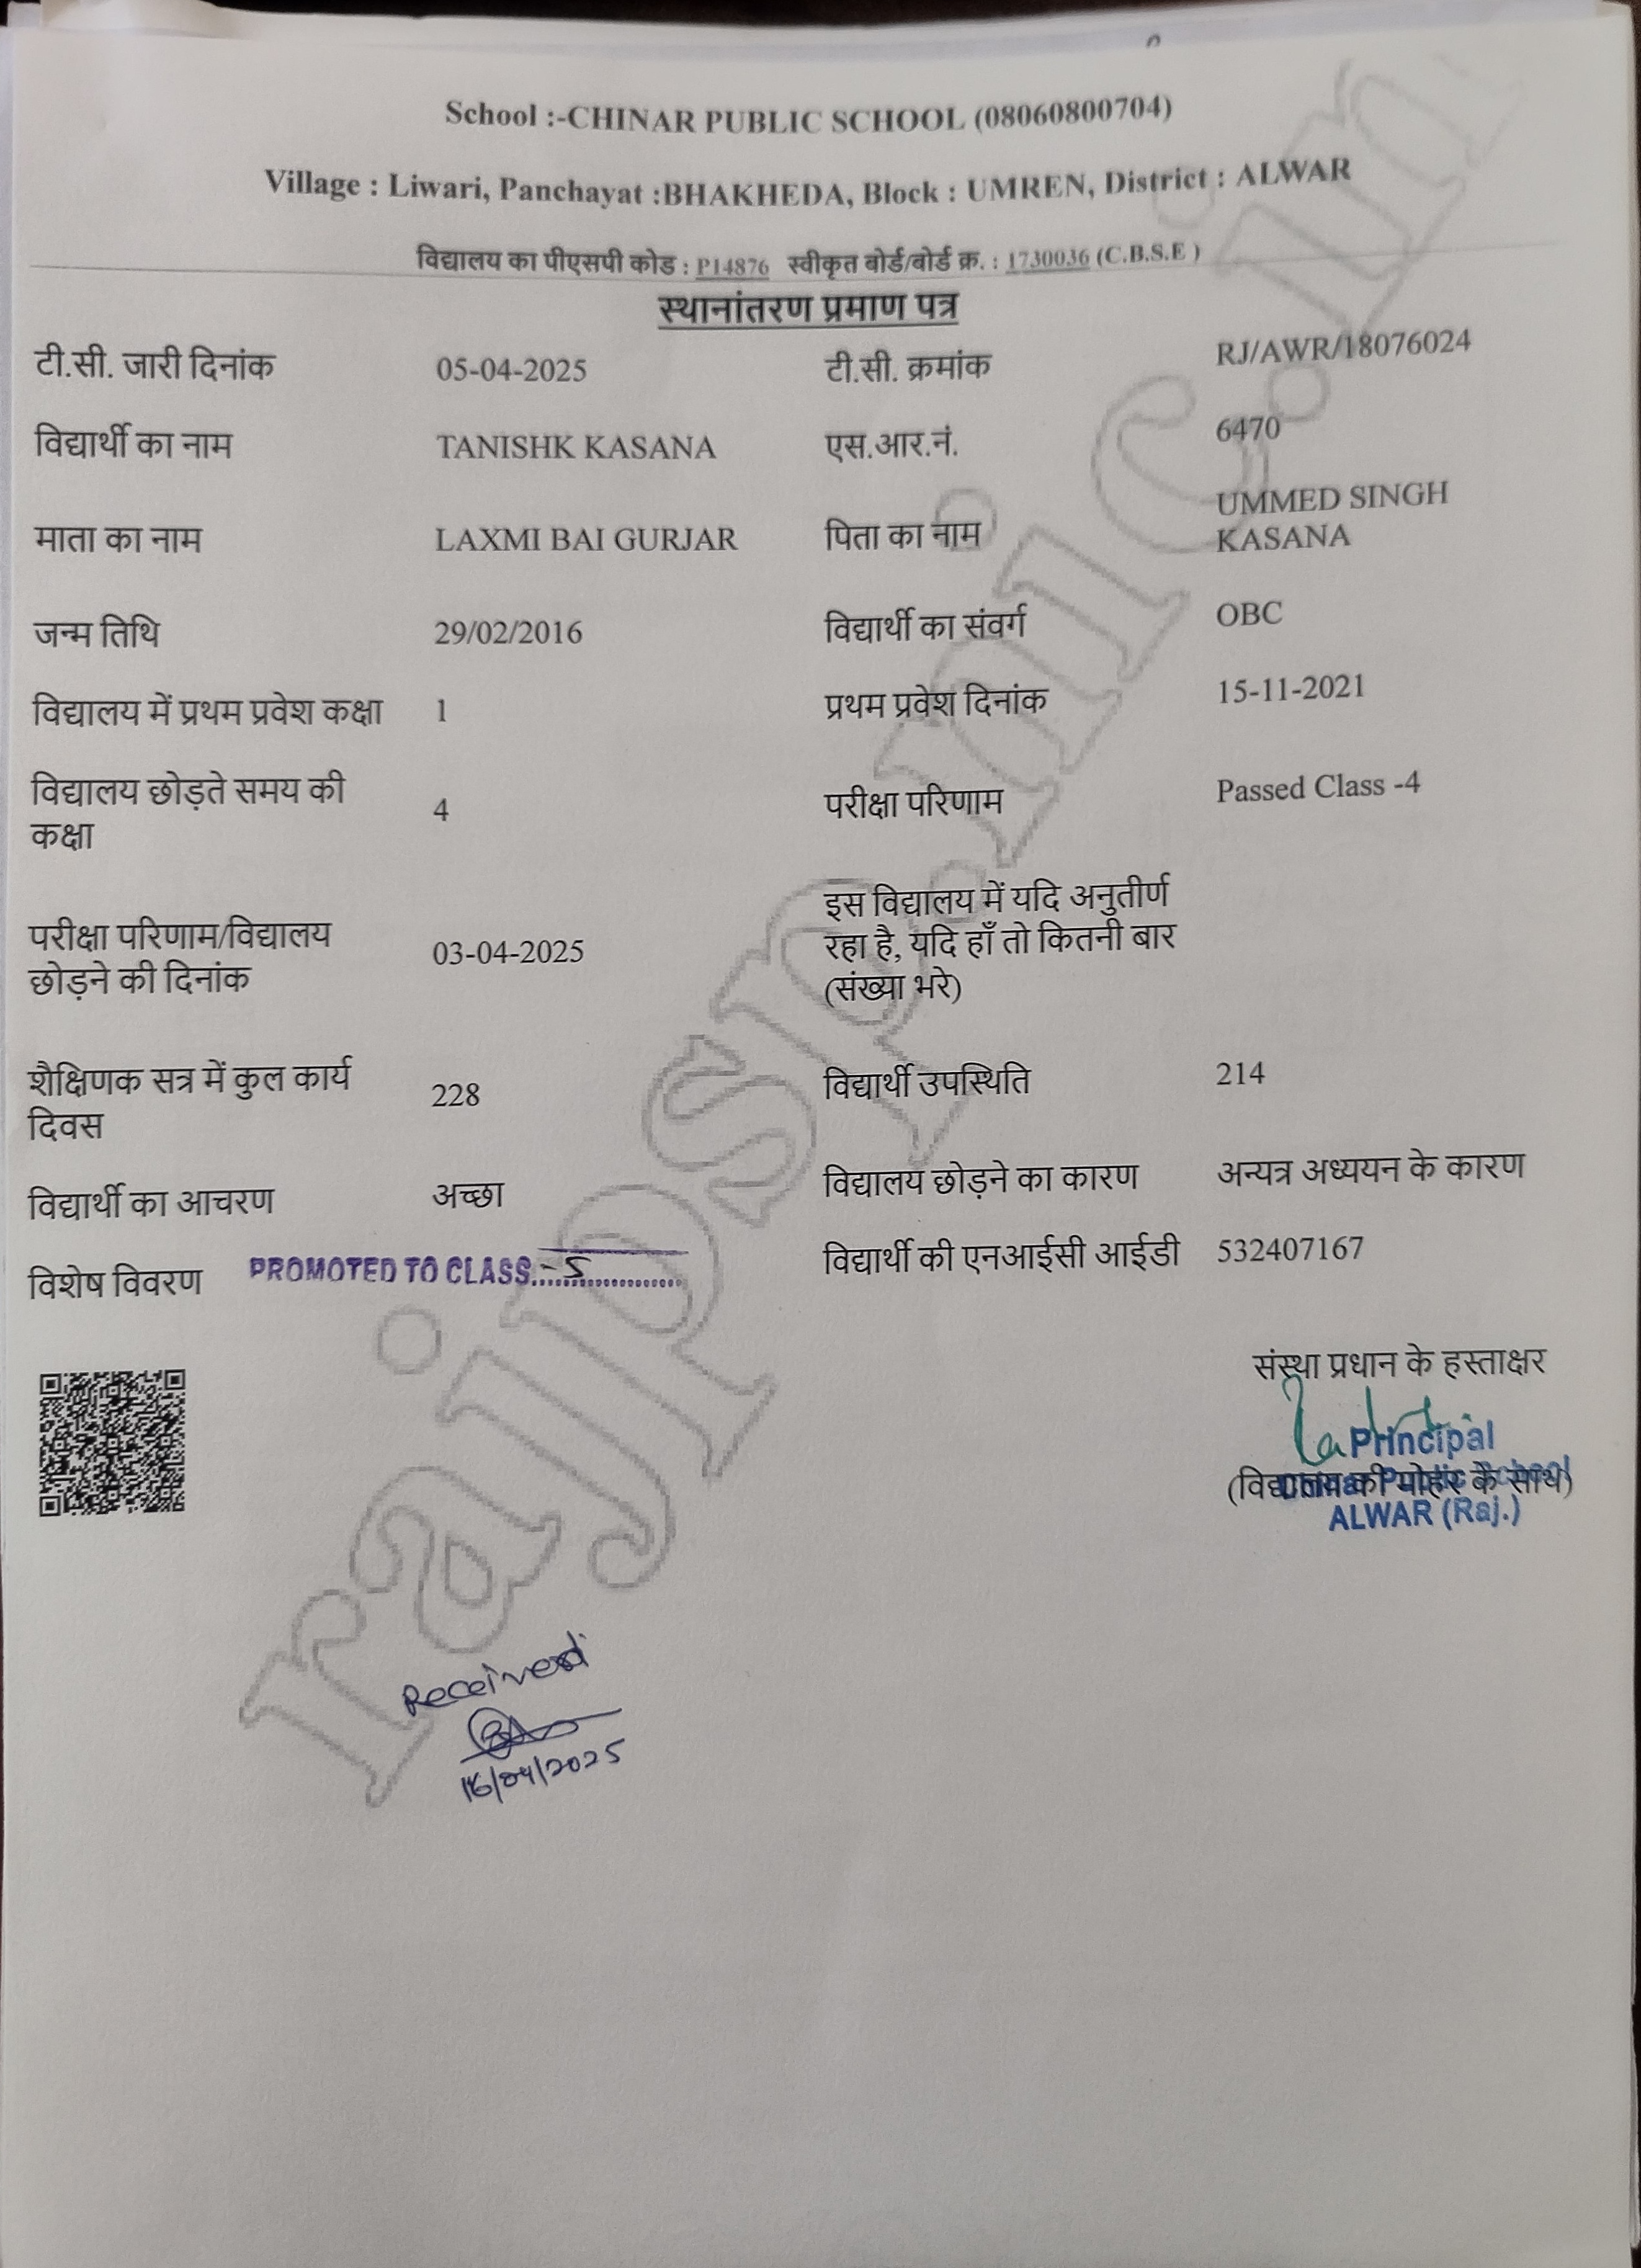 School :-CHINAR PUBLIC SCHOOL (08060800704)
Village : Liwari, Panchayat :BHAKHEDA, Block : UMREN, District : ALWAR
विद्यालय का पीएसपी कोड : P14876 स्वीकृत बोर्ड/बोर्ड क्र. : 1730036 (C.B.S.E )
स्थानांतरण प्रमाण पत्र
टी.सी. जारी दिनांक 05-04-2025 टी.सी. क्रमांक RJ/AWR/18076024
विद्यार्थी का नाम TANISHK KASANA एस.आर.नं. 6470
माता का नाम LAXMI BAI GURJAR पिता का नाम UMMED SINGH
KASANA
जन्म तिथि 29/02/2016 विद्यार्थी का संवर्ग OBC
विद्यालय में प्रथम प्रवेश कक्षा 1 प्रथम प्रवेश दिनांक 15-11-2021
विद्यालय छोड़ते समय की
कक्षा 4 परीक्षा परिणाम Passed Class -4
परीक्षा परिणाम/विद्यालय
छोड़ने की दिनांक 03-04-2025
इस विद्यालय में यदि अनुतीर्ण
रहा है, यदि हाँ तो कितनी बार
(संख्या भरे)
शैक्षिणक सत्र में कुल कार्य
दिवस 228 विद्यार्थी उपस्थिति 214
विद्यार्थी का आचरण अच्छा विद्यालय छोड़ने का कारण अन्यत्र अध्ययन के कारण
विशेष विवरण PROMOTED TO CLASS....-5............... विद्यार्थी की एनआईसी आईडी 532407167
संस्था प्रधान के हस्ताक्षर
Principal
(विद्यालय की मोहर के साथ)
ALWAR (Raj.)
Received
16/04/2025
rajpsp.nic.in